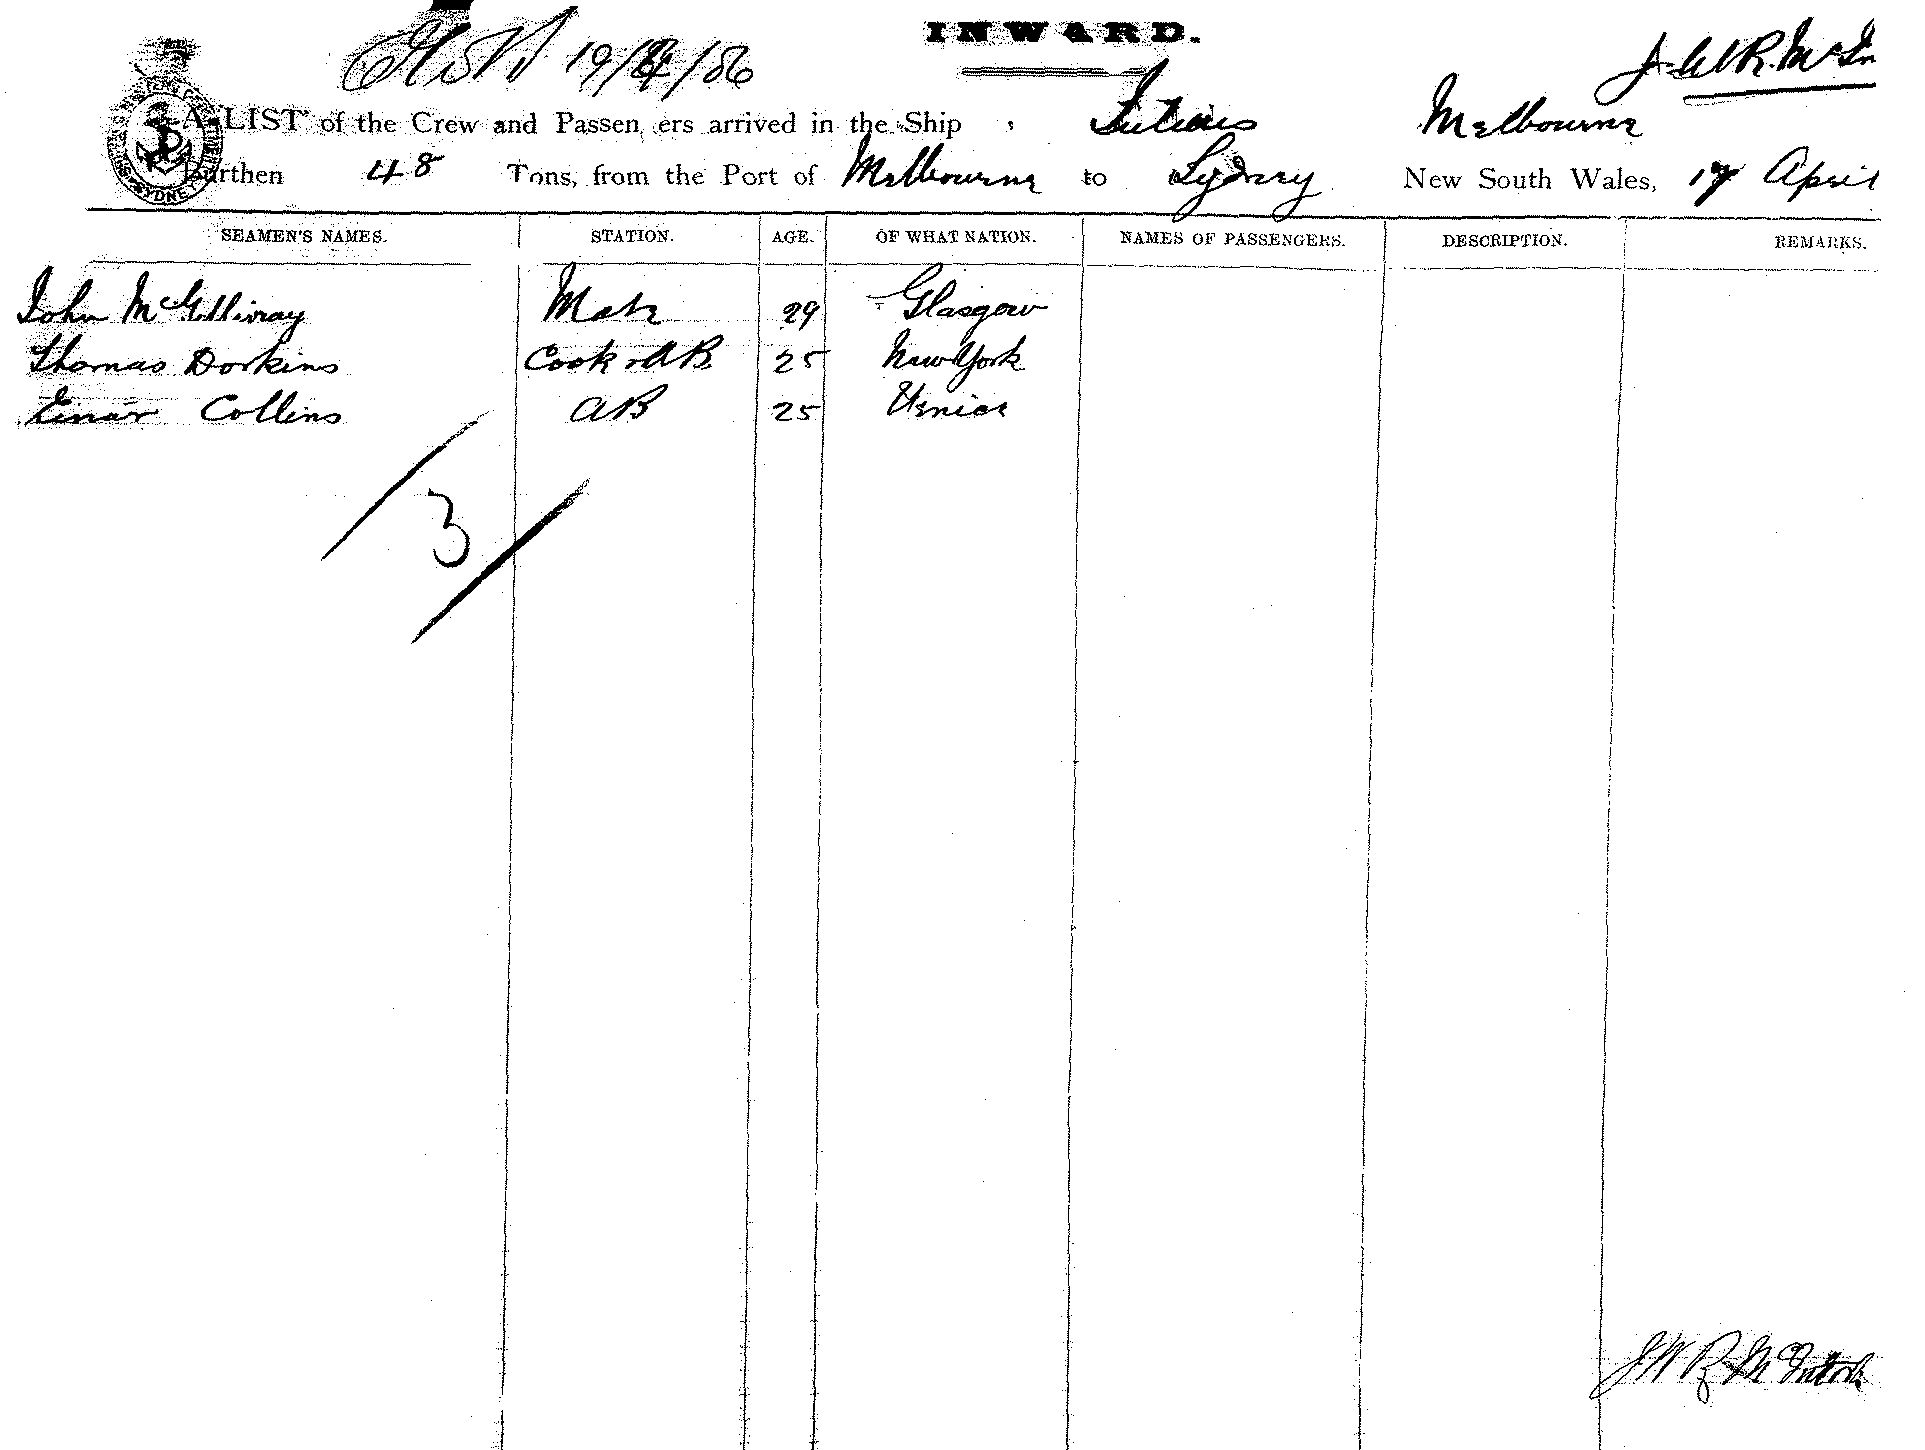 19/4/86
INWARD.
J. W. R. McIn
A LIST of the Crew and Passen ers arrived in the Ship , Melbourne
Burthen 48 Tons, from the Port of Melbourne to Sydney New South Wales, 17 April
SEAMEN'S NAMES. STATION. AGE. OF WHAT NATION. NAMES OF PASSENGERS. DESCRIPTION. REMARKS.
John McGillivray Mate 29 Glasgow
Thomas Dorkins Cook & AB 25 New York
Einar Collins AB 25 Venice
/3/
J W R McIntosh